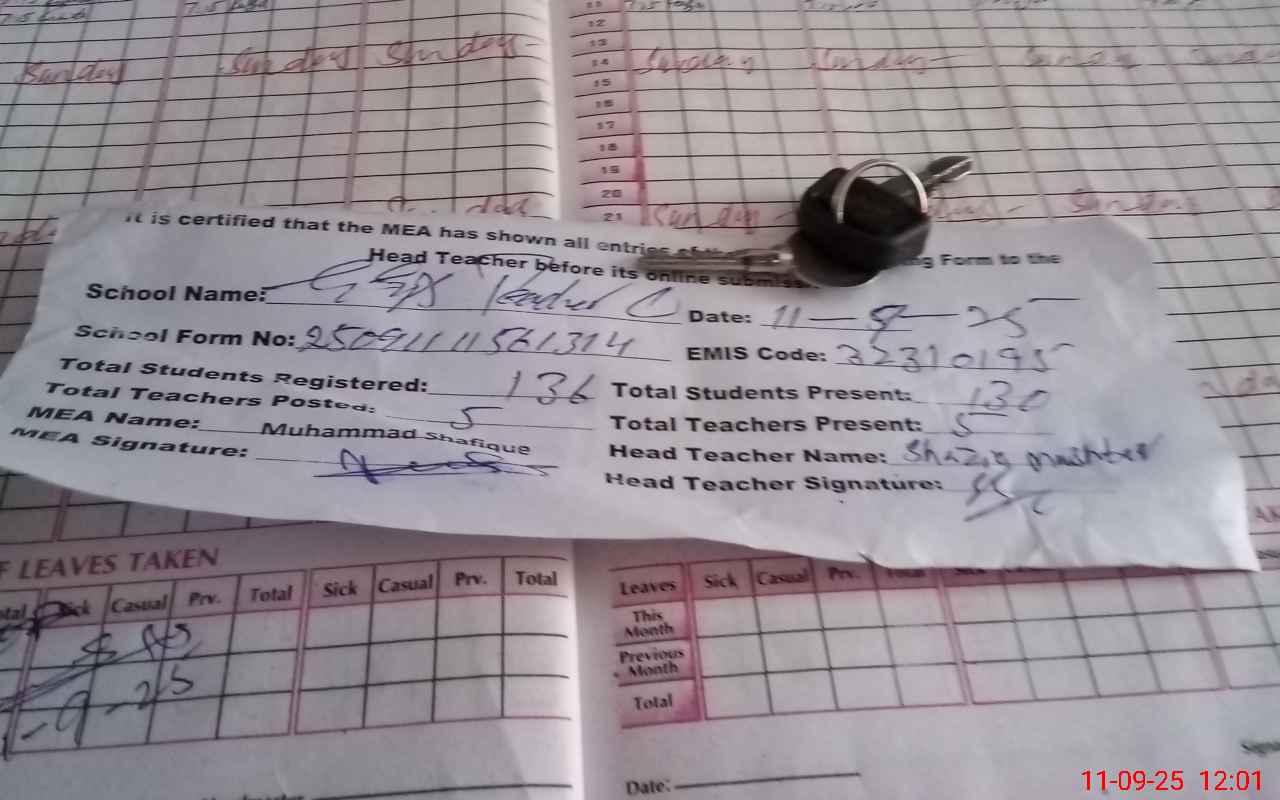 7.5
11
12
13
14
15
16
17
18
19
20
21
Sunday Sunday Sunday- Sunday Sunday- Sunday
Sunday-
It is certified that the MEA has shown all entries of the ng Form to the
Head Teacher before its online submiss
School Name: GGPS
Date: 11-9-25
School Form No: 25091111561314
EMIS Code: 32310195
Total Students Registered: 136
Total Students Present: 130
Total Teachers Posted: 5
Total Teachers Present: 5
MEA Name: Muhammad Shafique
Head Teacher Name: Shazia
MEA Signature:
Head Teacher Signature:
F LEAVES TAKEN
Sick Casual Prv. Total Sick Casual Prv. Total
Leaves Sick Casual Prv. Total
This Month
Previous Month
Total
-9-25
Date:
11-09-25 12:01